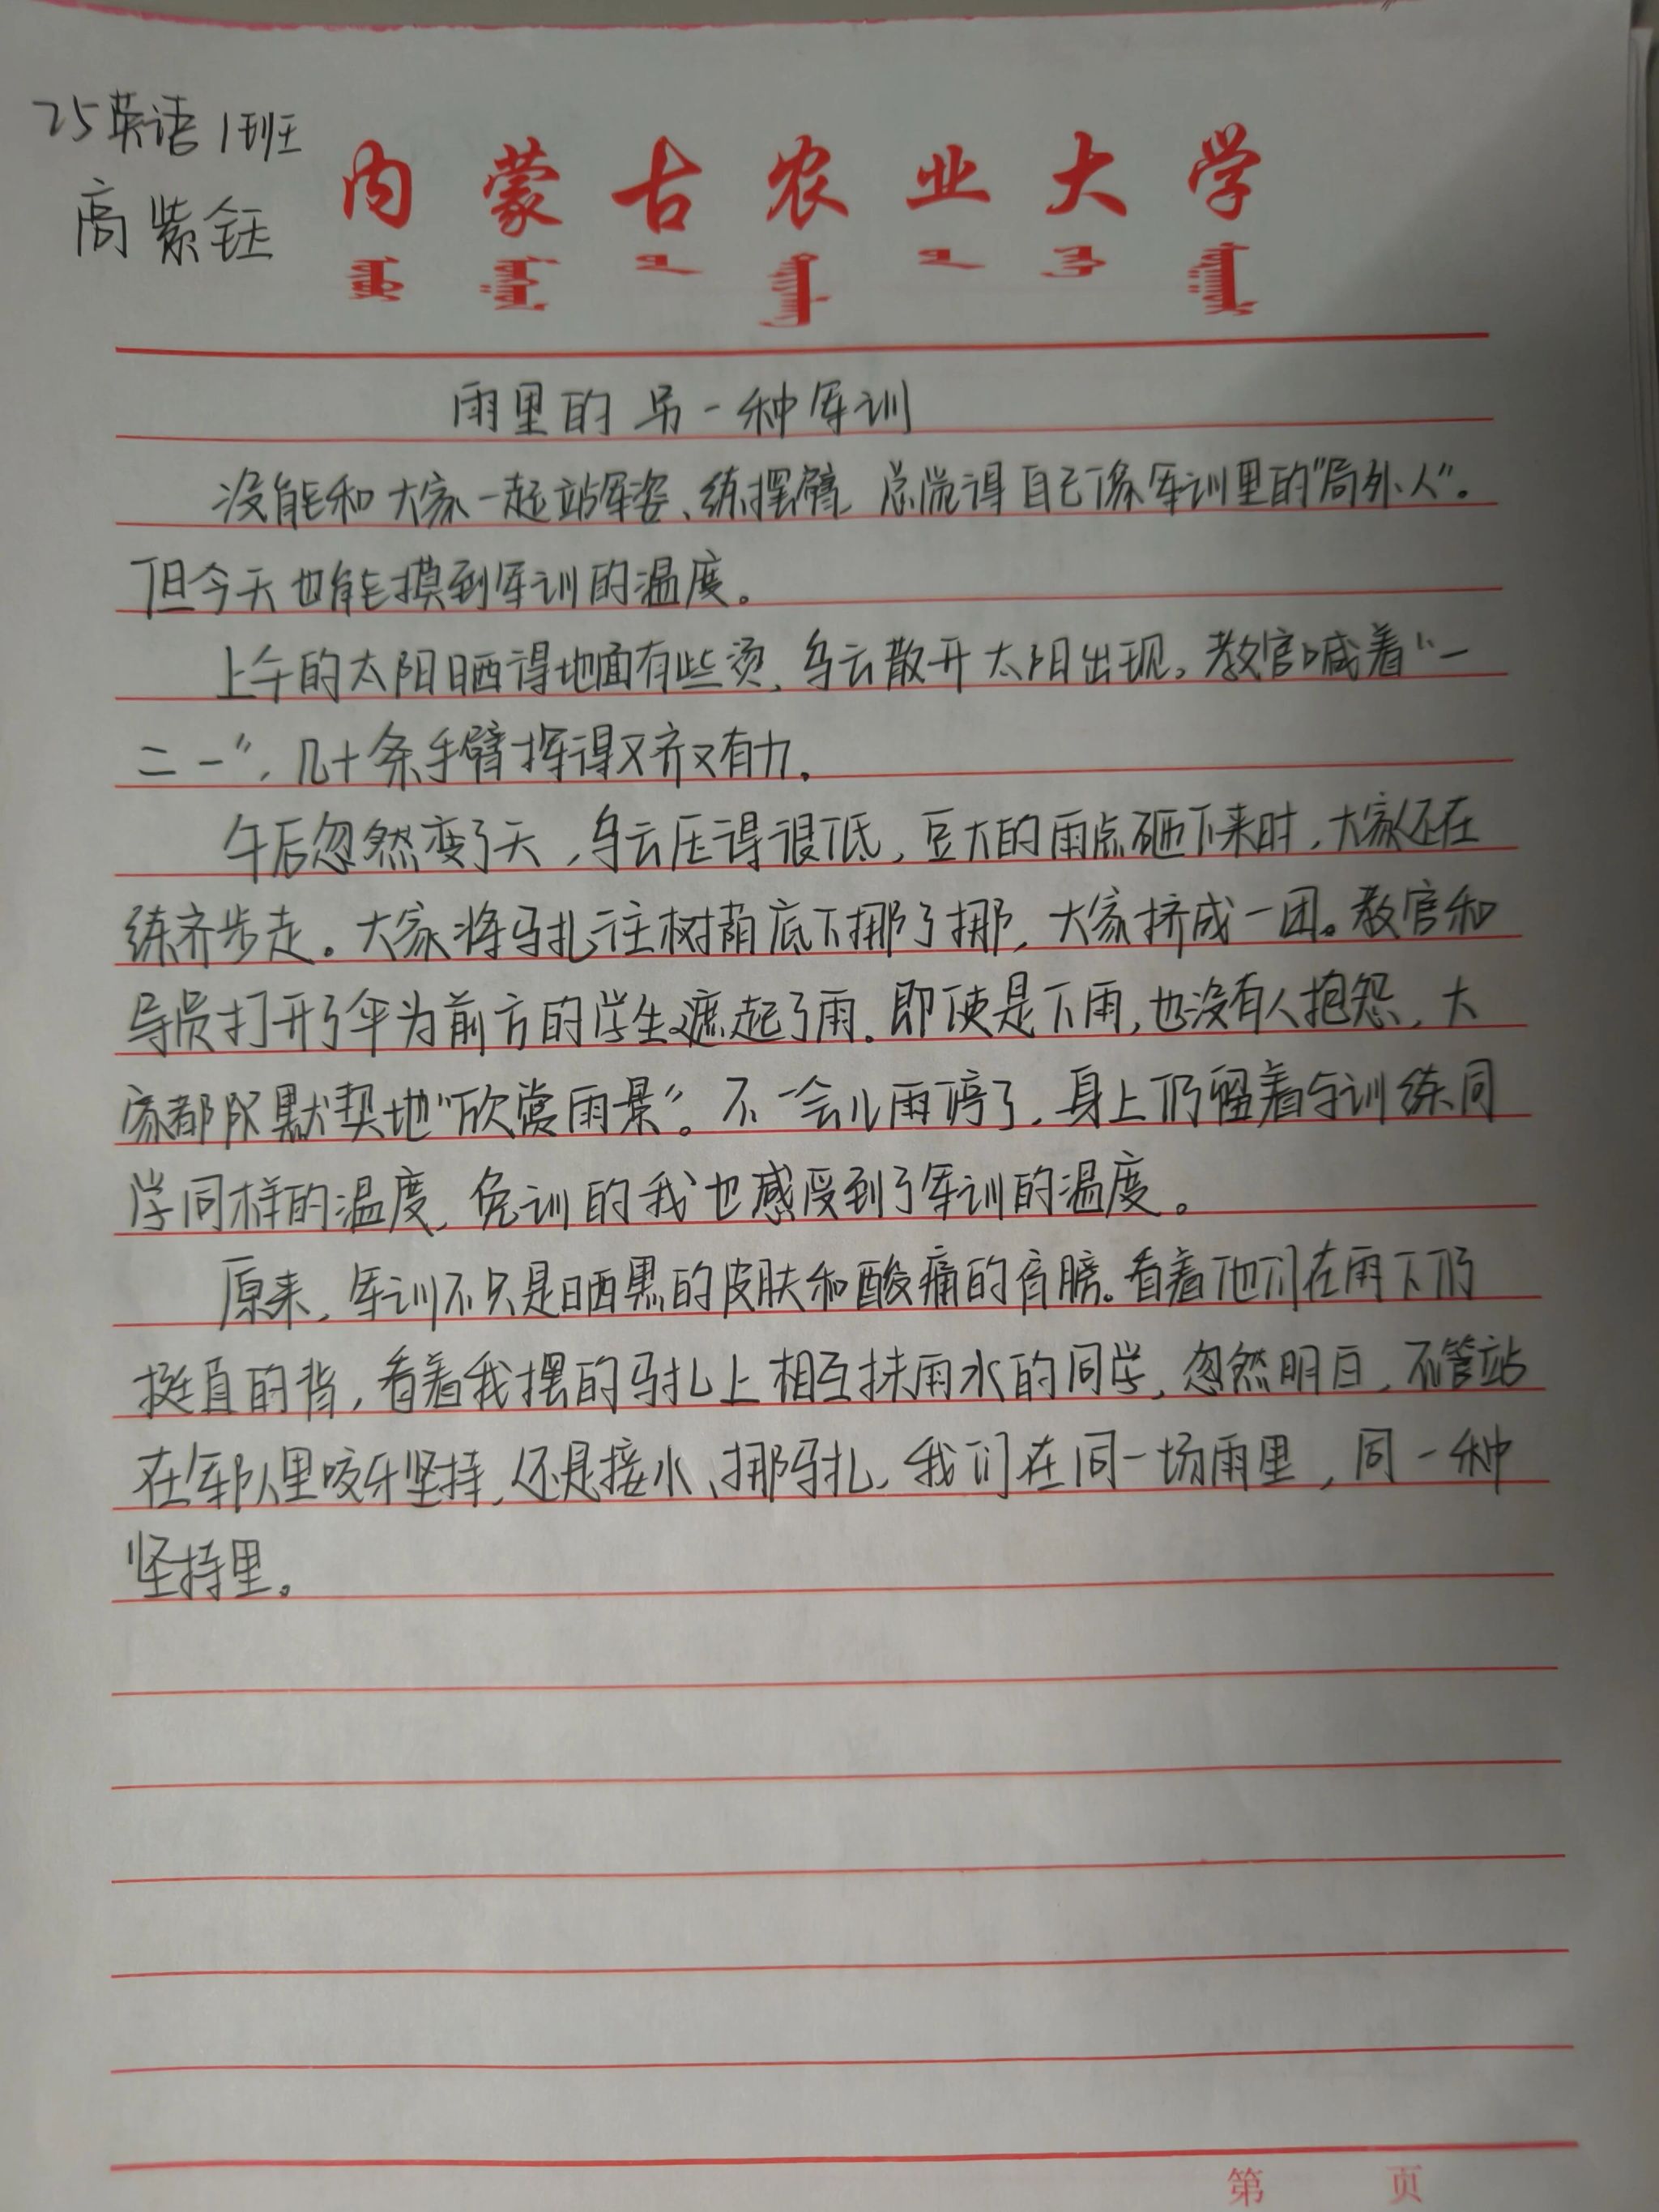 25英语1班
高紫钰
内蒙古农业大学
雨里的另一种军训
没能和大家一起站军姿、练摆臂,总觉得自己像军训里的“局外人”。
但今天也能摸到军训的温度。
上午的太阳晒得地面有些烫,乌云散开太阳出现。教官喊着“一
二一”,几十条手臂挥得又齐又有力。
午后忽然变了天,乌云压得很低,豆大的雨点砸下来时,大家还在
练齐步走。大家将马扎往树荫底下挪了挪,大家挤成一团。教官和
导员打开了伞为前方的学生遮起了雨。即使是下雨,也没有人抱怨,大
家都默契地“欣赏雨景”。不一会儿雨停了,身上仍留着与训练同
学同样的温度,免训的我也感受到了军训的温度。
原来,军训不只是晒黑的皮肤和酸痛的肩膀。看着他们在雨下仍
挺直的背,看着我摆的马扎上相互抹雨水的同学,忽然明白,不管站
在军队里咬牙坚持,还是接水、挪马扎,我们在同一场雨里,同一种
坚持里。
第 页